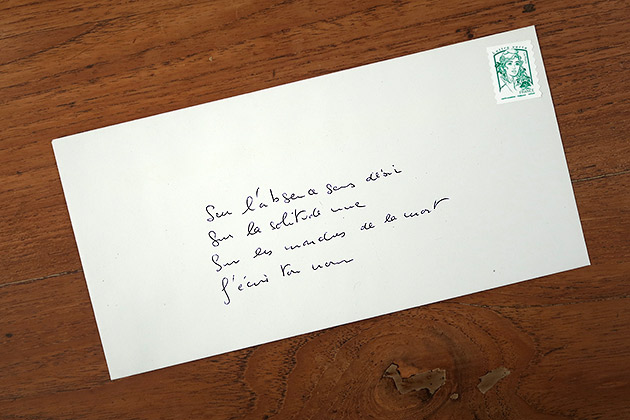 LETTRE VERTE
FRANCE
Sur l'absence sans désir
Sur la solitude nue
Sur les marches de la mort
J'écris ton nom